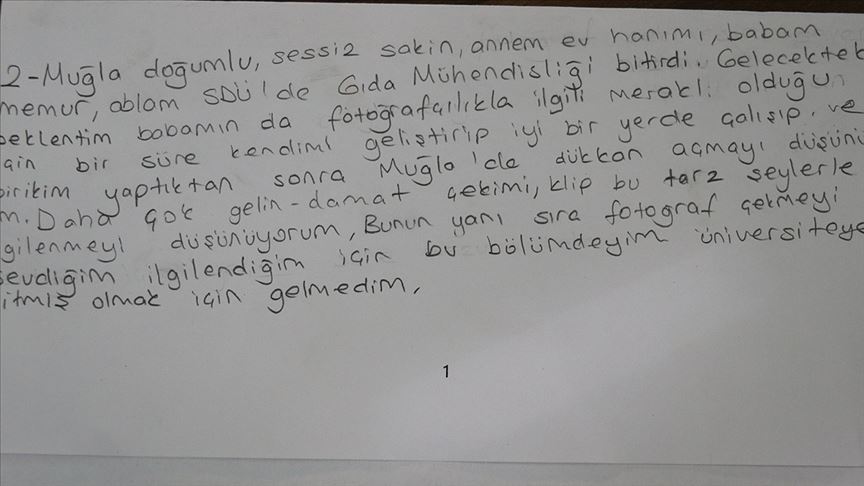 2-Muğla doğumlu, sessiz sakin, annem ev hanımı, babam
memur, ablam SDÜ'de Gıda Mühendisliği bitirdi. Gelecektek
beklentim babamın da fotoğrafcılıkla ilgili meraklı olduğun
için bir süre kendimi geliştirip iyi bir yerde çalışıp, ve
birikim yaptıktan sonra Muğla'da dükkan açmayı düşünü
m. Daha çok gelin-damat çekimi, klip bu tarz şeylerle
gilenmeyi düşünüyorum, Bunun yanı sıra fotograf çekmeyi
sevdiğim ilgilendiğim için bu bölümdeyim üniversiteye
itmiş olmak için gelmedim,
1